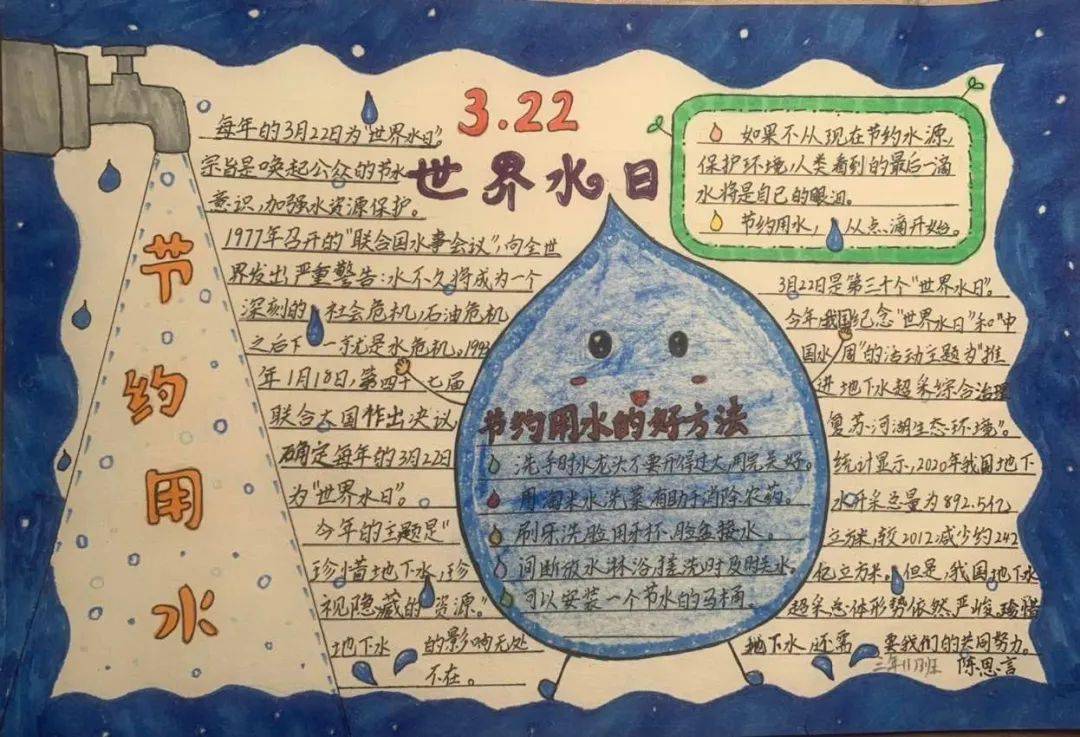 3.22
世界水日
节约用水
每年的3月22日为“世界水日”，
宗旨是唤起公众的节水
意识，加强水资源保护。
1977年召开的“联合国水事会议”，向全世
界发出严重警告：水不久将成为一个
深刻的社会危机，石油危机
之后下一就是水危机。1993
年1月18日，第四十七届
联合大国作出决议，
确定每年的3月22日
为“世界水日”。
今年的主题是“
珍惜地下水，珍
视隐藏的资源。”
地下水的影响无处
不在。
节约用水的好方法
洗手时水龙头不要开得过大，用完关好。
用淘米水洗菜，有助于消除农药。
刷牙、洗脸用牙杯、脸盆接水。
间断放水淋浴，搓洗时及时关水。
可以安装一个节水的马桶。
如果不从现在节约水源，
保护环境，人类看到的最后一滴
水将是自己的眼泪。
节约用水，从点滴开始。
3月22日是第三十个“世界水日”。
今年我国纪念“世界水日”和“中
国水周”的活动主题为“推
进地下水超采综合治理
复苏河湖生态环境”。
统计显示，2020年我国地下
水开采总量为892.5亿
立方米，较2012减少约242
亿立方米。但是，我国地下水
超采总体形势依然严峻。珍惜
地下水，还需要我们的共同努力。
三年11班 陈思言